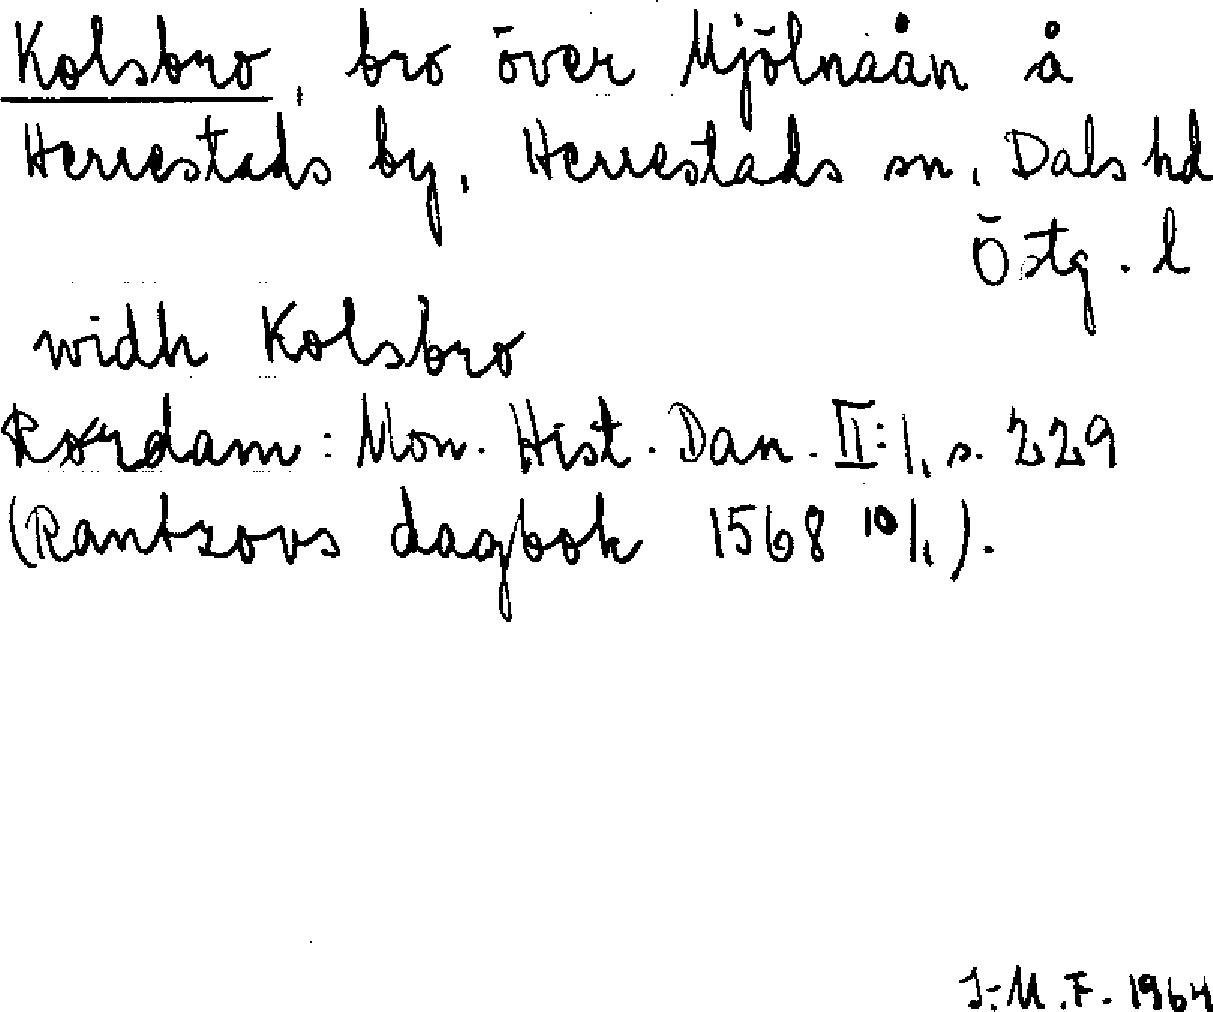 Kolsbro, bro över Mjölnaån å
Herrestads by, Herrestads sn, Dals hd
Östg. l
widh Kolsbro
Rørdam: Mon. Hist. Dan. II:1, s. 229
(Rantzovs dagbok 1568 10/1).
J.M.F. 1964